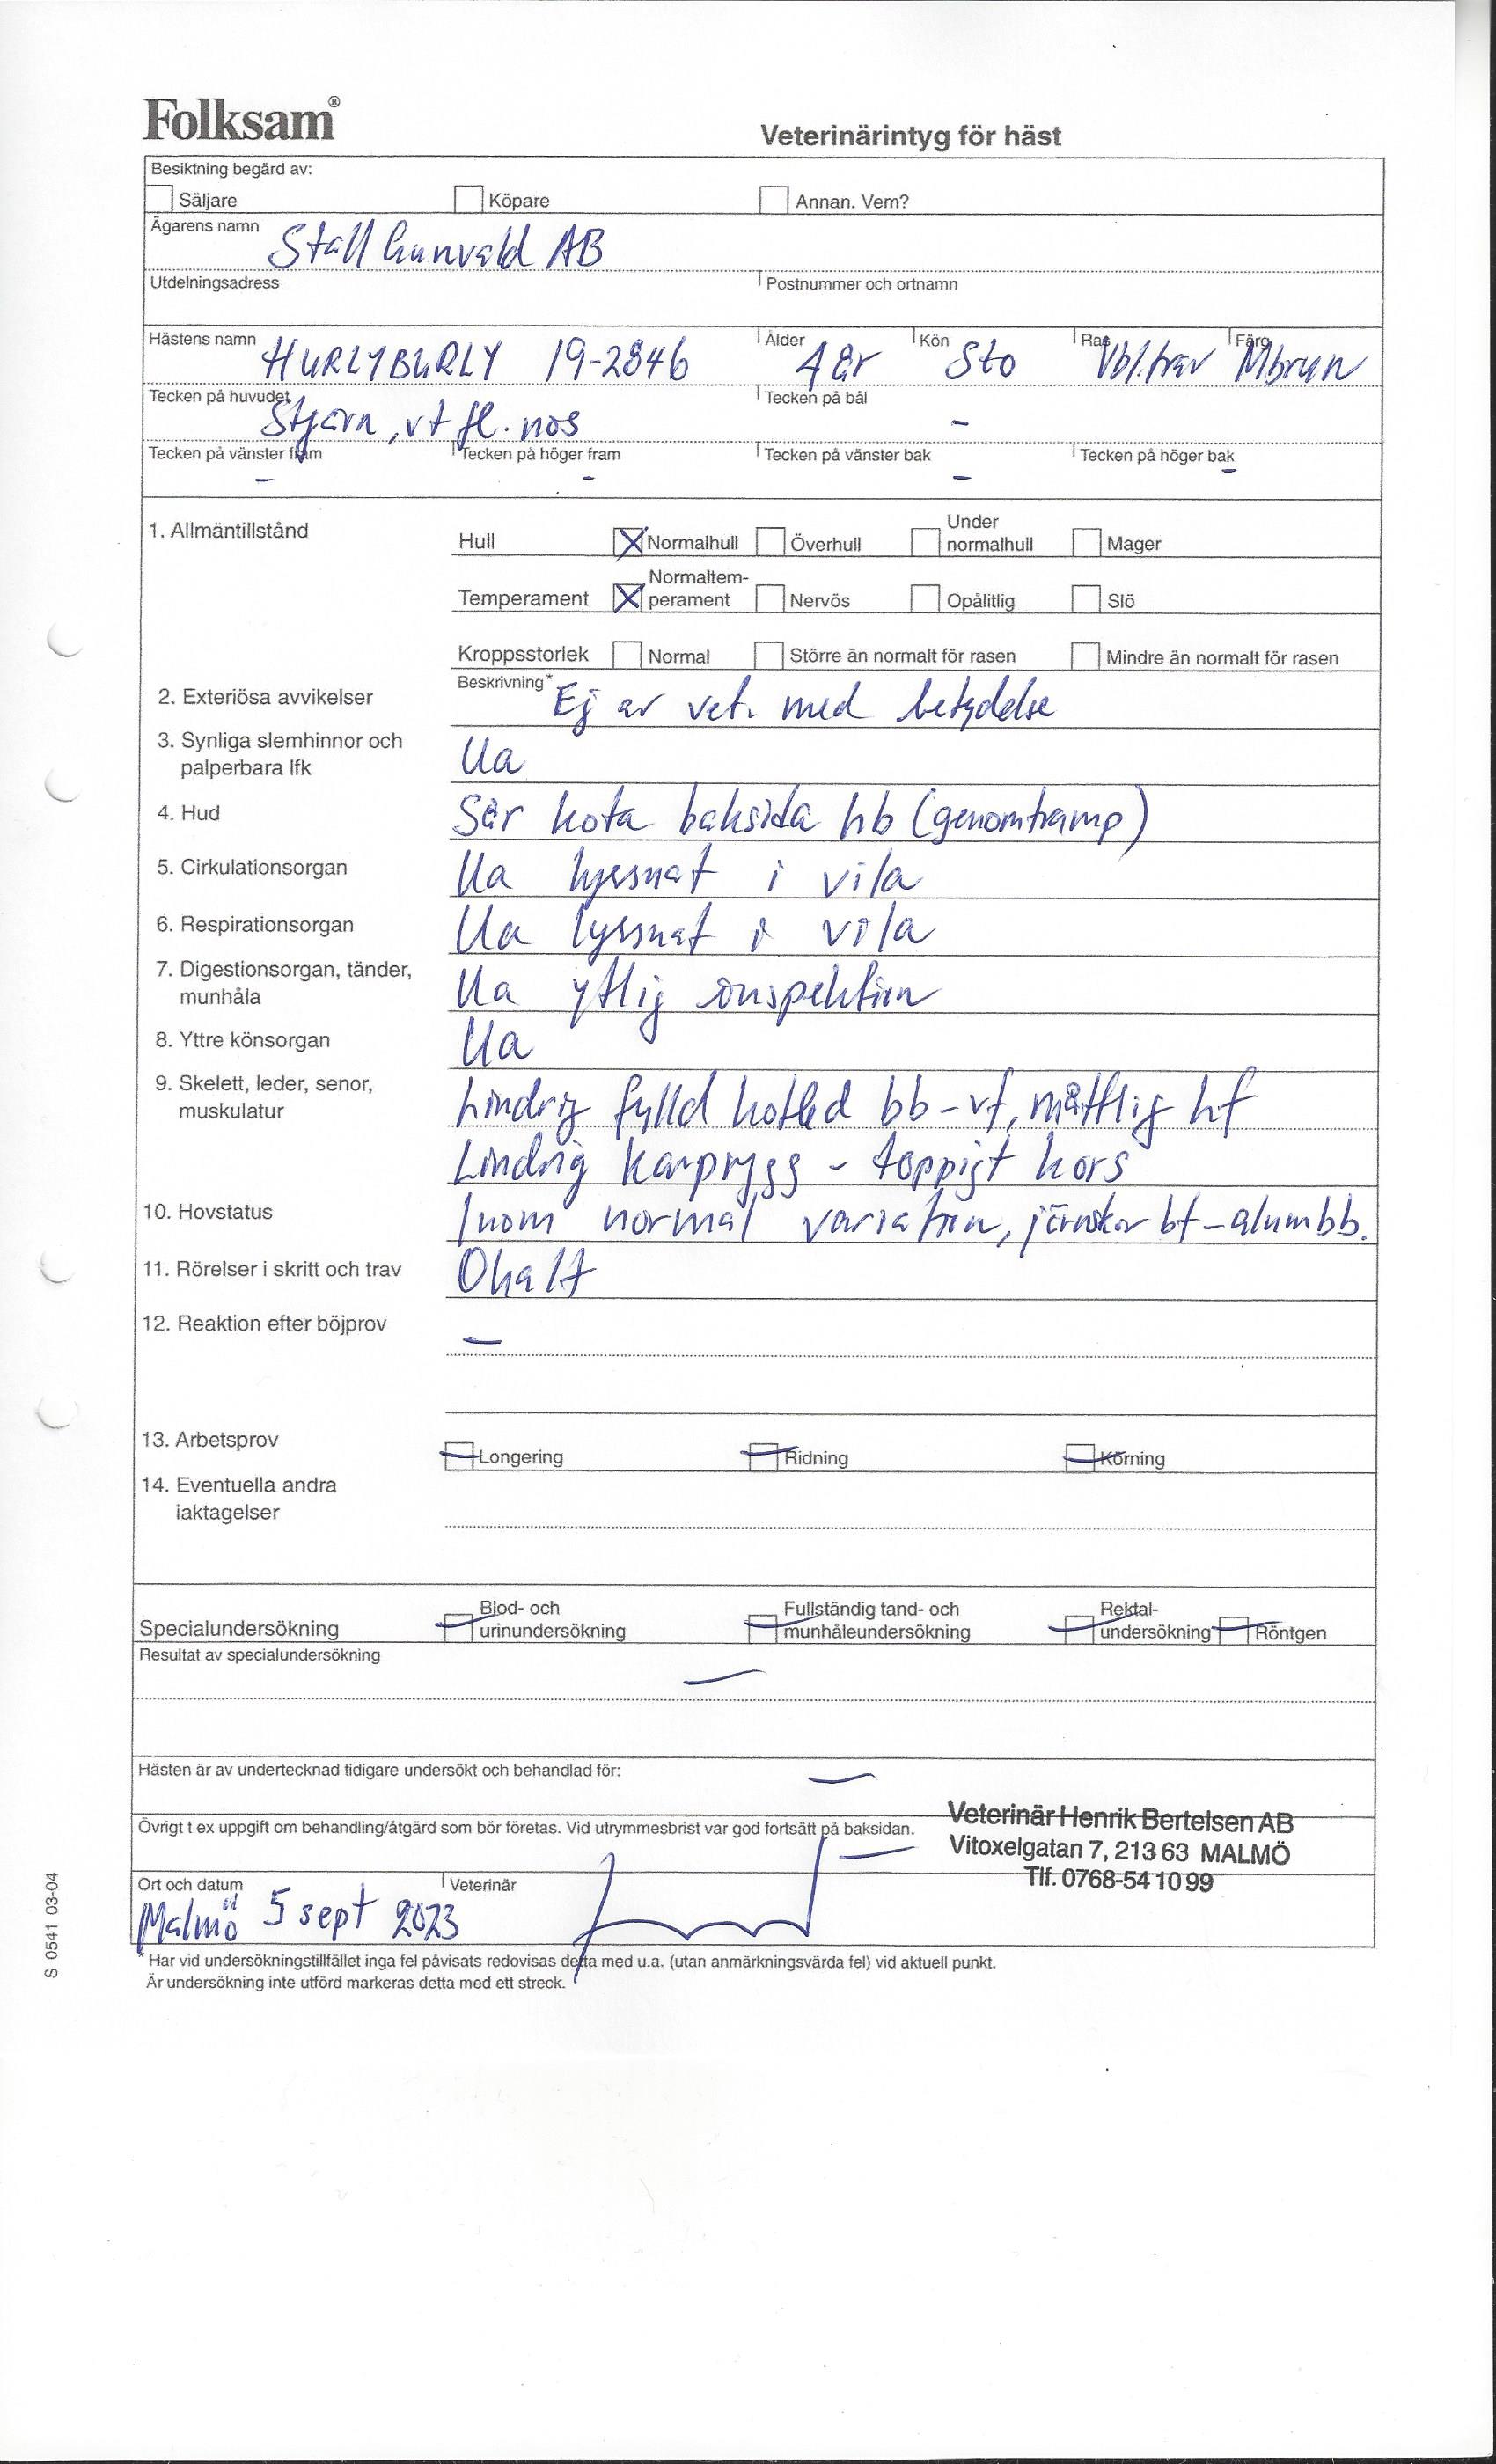 Folksam®
Veterinärintyg för häst
Besiktning begärd av:
Säljare Köpare Annan. Vem?
Ägarens namn Stall Gunvald AB
Utdelningsadress Postnummer och ortnamn
Hästens namn HURLYBURLY 19-2846 Ålder 4 år Kön Sto Ras Vbl.trav Färg Mbrun
Tecken på huvudet Stjärn, vt fl. nos Tecken på bål -
Tecken på vänster fram - Tecken på höger fram - Tecken på vänster bak - Tecken på höger bak -
1. Allmäntillstånd Hull Normalhull Överhull Under normalhull Mager
Temperament Normaltemperament Nervös Opålitlig Slö
Kroppsstorlek Normal Större än normalt för rasen Mindre än normalt för rasen
2. Exteriösa avvikelser Beskrivning* Ej av vet. med betydelse
3. Synliga slemhinnor och palperbara lfk Ua
4. Hud Sår kota baksida hb (genomtramp)
5. Cirkulationsorgan Ua lyssnat i vila
6. Respirationsorgan Ua lyssnat i vila
7. Digestionsorgan, tänder, munhåla Ua ytlig inspektion
8. Yttre könsorgan Ua
9. Skelett, leder, senor, muskulatur Lindrig fylld kotled bb-vf, måttlig hf
Lindrig karprygg - toppigt kors
10. Hovstatus Inom normal variation, järnskor bf-alum bb.
11. Rörelser i skritt och trav Ohalt
12. Reaktion efter böjprov -
13. Arbetsprov Longering Ridning Körning
14. Eventuella andra iaktagelser
Specialundersökning Blod- och urinundersökning Fullständig tand- och munhåleundersökning Rektalundersökning Röntgen
Resultat av specialundersökning -
Hästen är av undertecknad tidigare undersökt och behandlad för: -
Övrigt t ex uppgift om behandling/åtgärd som bör företas. Vid utrymmesbrist var god fortsätt på baksidan. -
Veterinär Henrik Bertelsen AB
Vitoxelgatan 7, 213 63 MALMÖ
Tlf. 0768-54 10 99
Ort och datum Malmö 5 sept 2023 Veterinär
* Har vid undersökningstillfället inga fel påvisats redovisas detta med u.a. (utan anmärkningsvärda fel) vid aktuell punkt.
Är undersökning inte utförd markeras detta med ett streck.
S 0541 03-04